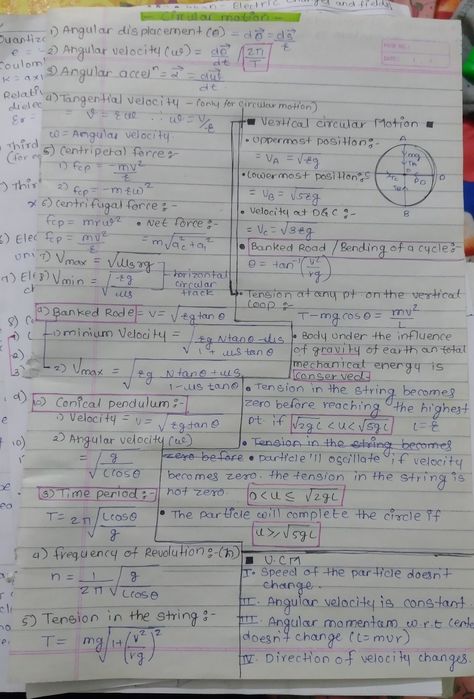 Circular motion
1) Angular displacement (θ) = dθ = ds/r
2) Angular velocity (ω) = dθ/dt, 2π/T
3) Angular accelⁿ = α = dω/dt
4) Tangential velocity - (only for circular motion)
= v = rω ∴ ω = v/r
ω = Angular velocity
5) Centripetal force :-
1) fcp = -mv²/r
2) fcp = -mrω²
6) Centrifugal force :-
fcp = mrω² • Net force :-
fcp = mv²/r = m√(ac² + at²)
7) Vmax = √(μs rg)
8) Vmin = √(rg/μs) horizontal circular track
9) Banked Rode = v = √(rg tanθ)
1) minimum Velocity = √(rg Ntanθ-μs / 1+ μs tanθ)
2) Vmax = √(rg Ntanθ+μs / 1-μs tanθ)
10) Conical pendulum :-
1) Velocity = v = √(rg tanθ)
2) Angular velocity (ω)
= √(g / Lcosθ)
3) Time period :-
T = 2π √(Lcosθ / g)
4) frequency of Revolution :- (n)
n = 1/2π √(g / Lcosθ)
5) Tension in the string :-
T = mg√(1+(v²/rg)²)
■ Vertical circular Motion ■
• Uppermost position :-
= VA = √rg
• Lowermost position :-
= VB = √5rg
• Velocity at D&C :-
= Vc = √3rg
A
mg
TA
C
D
B
• Banked Road / Bending of a cycle :-
θ = tan⁻¹(v²/rg)
• Tension at any pt on the vertical
Loop :-
T - mg cosθ = mv²/L
• Body under the influence
of gravity of earth an total
mechanical energy is
conserved.
• Tension in the string becomes
zero before reaching the highest
pt if √2gL < u < √5gL L = r
• Tension in the string becomes
zero before • particle'll oscillate if velocity
becomes zero. the tension in the string is
not zero. 0 < u ≤ √2gL
• The particle will complete the circle if
u ≥ √5gL
■ U.C.M
I. Speed of the particle doesn't
change.
II. Angular velocity is constant
III. Angular momentam w.r.t cente
doesn't change (L = mvr)
IV. Direction of velocity changes.